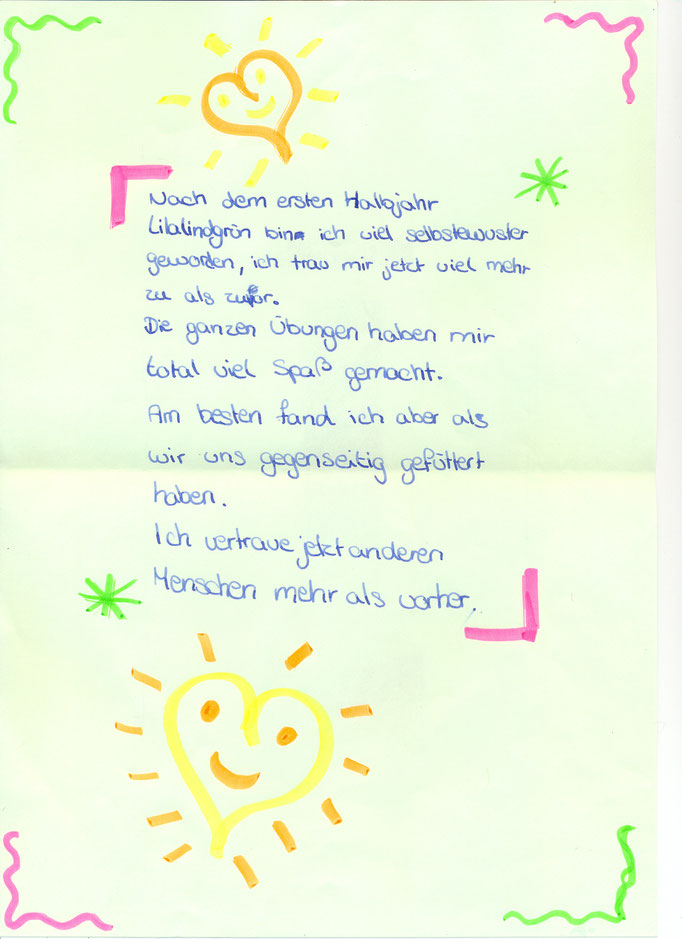 Nach dem ersten Halbjahr
Lilalindgrün bin ich viel selbstewuster
geworden, ich trau mir jetzt viel mehr
zu als zuvor.
Die ganzen Übungen haben mir
total viel Spaß gemacht.
Am besten fand ich aber als
wir uns gegenseitig gefüttert
haben.
Ich vertraue jetzt anderen
Menschen mehr als vorher.